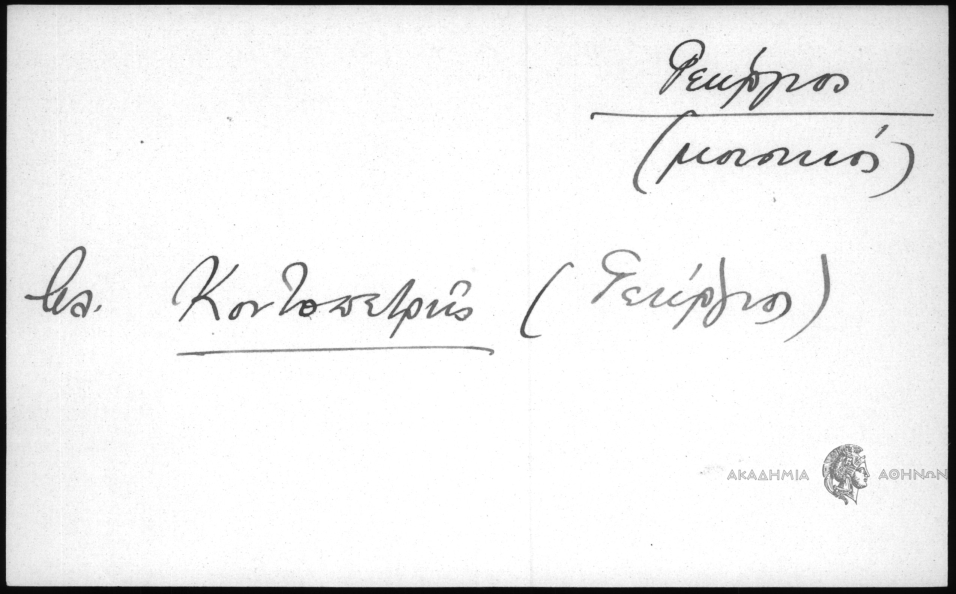 Γεώργιος
(μουσικός)
βλ. Κοντοπετρῆς (Γεώργιος)
ΑΚΑΔΗΜΙΑ ΑΘΗΝΩΝ